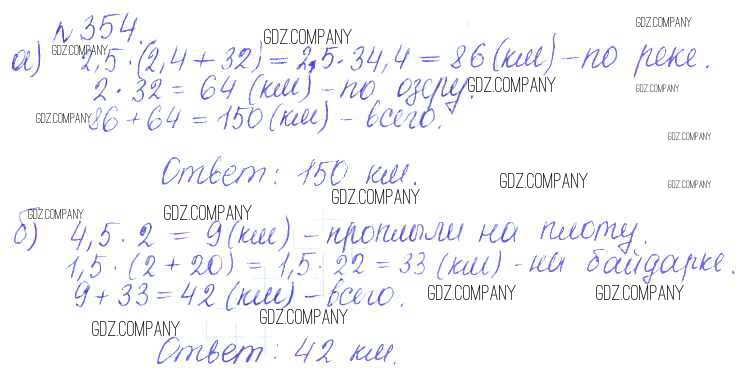 №354.
GDZ.COMPANY
GDZ.COMPANY
GDZ.COMPANY
а) 2,5·(2,4+32)=2,5·34,4=86(км)-по реке.
2·32=64(км)-по озеру.
GDZ.COMPANY
GDZ.COMPANY
GDZ.COMPANY
86+64=150(км)-всего.
GDZ.COMPANY
Ответ: 150 км.
GDZ.COMPANY
GDZ.COMPANY
GDZ.COMPANY
GDZ.COMPANY
GDZ.COMPANY
б) 4,5·2=9(км)-проплыли на плоту.
1,5·(2+20)=1,5·22=33(км)-на байдарке.
9+33=42(км)-всего.
GDZ.COMPANY
GDZ.COMPANY
GDZ.COMPANY
GDZ.COMPANY
Ответ: 42 км.